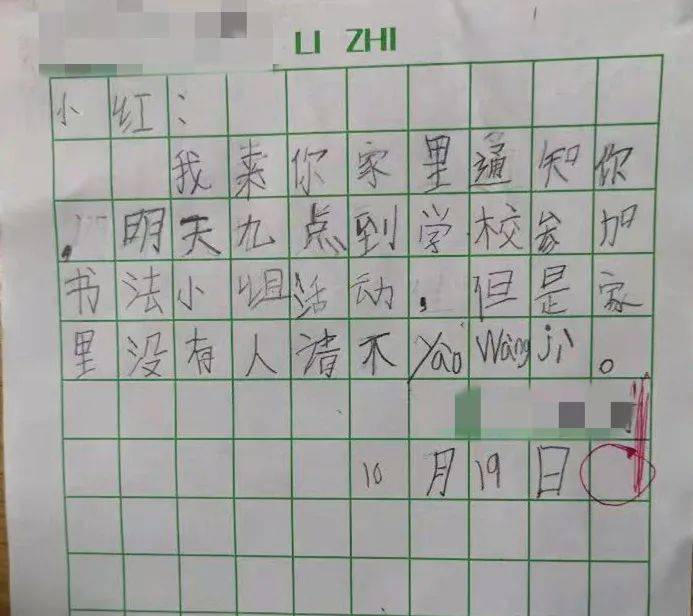 LI ZHI
小红：
我来你家里通知你
，明天九点到学校参加
书法小组活动，但是家
里没有人请不yào wàng jì。
10月19日